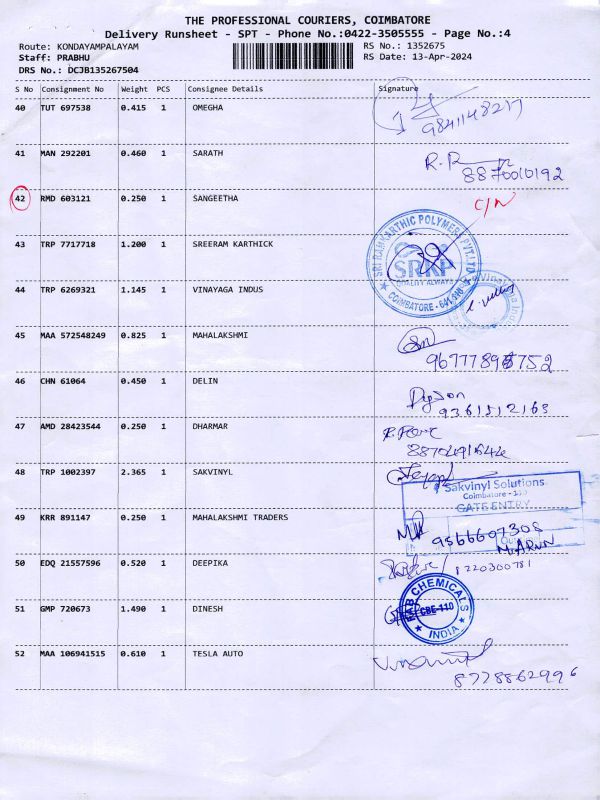 THE PROFESSIONAL COURIERS, COIMBATORE
Delivery Runsheet - SPT - Phone No.:0422-3505555 - Page No.:4
Route: KONDAYAMPALAYAM
RS No.: 1352675
Staff: PRABHU
RS Date: 13-Apr-2024
DRS No.: DCJB135267504
S No Consignment No Weight PCS Consignee Details Signature
40 TUT 697538 0.415 1 OMEGHA
9841148217
41 MAN 292201 0.460 1 SARATH
8870010192
42 RMD 603121 0.250 1 SANGEETHA
C/N
43 TRP 7717718 1.200 1 SREERAM KARTHICK
SRI RAM KARTHIC POLYMERS PVT. LTD.
SRKP
QUALITY ALWAYS
COIMBATORE - 641
44 TRP 6269321 1.145 1 VINAYAGA INDUS
45 MAA 572548249 0.825 1 MAHALAKSHMI
46 CHN 61064 0.450 1 DELIN
9361512163
47 AMD 28423544 0.250 1 DHARMAR
48 TRP 1002397 2.365 1 SAKVINYL
Sakvinyl Solutions
Coimbatore - 110
GATE ENTRY
49 KRR 891147 0.250 1 MAHALAKSHMI TRADERS
9566607305
M.ARUN
50 EDQ 21557596 0.520 1 DEEPIKA
8220300781
51 GMP 720673 1.490 1 DINESH
CHEMICALS
CBE-110
INDIA
52 MAA 106941515 0.610 1 TESLA AUTO
8778862996